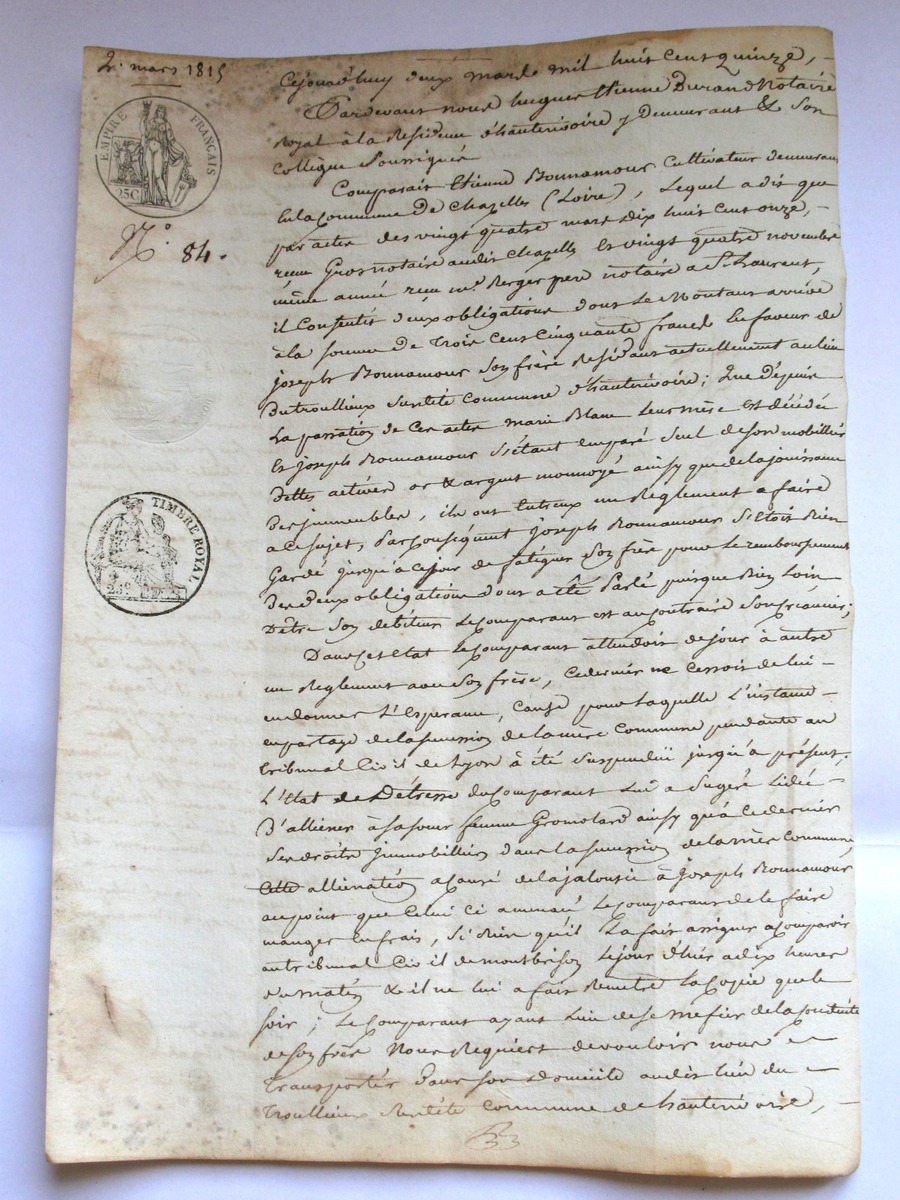 2. mars 1815
EMPIRE FRANÇAIS
25C
N.° 84.
TIMBRE ROYAL
Cejourd'huy deux mars mil huit cent quinze, –
Pardevant nous hugues Etienne Durand Notaire
Royal à la Residence d'hauterivoire y demeurant & son
collègue soussignés
Comparait Etienne Bonnamour cultivateur demeurant
en la commune De Chazelles (Loire), Lequel a dit que
par actes des vingt quatre mars dix huit cent onze, –
reçu Gros notaire audit Chazelles Et vingt quatre novembre
même année reçu me. Berger pere notaire a St. Laurent,
il Consentit deux obligations dont Le Montant arrive
à la somme De trois cent cinquante francs En faveur de
joseph Bonnamour son frère Residant actuellement au lieu
Du troullieux susdite commune d'hauterivoire; Que depuis
La passation de ces actes marie Blanc leur mère est décédée
Et joseph Bonnamour s'étant emparé seul de son mobillier
dettes actives or & argent monnoyé ainsy que de la jouissance
Des immeubles, ils ont Entreux un Reglement a faire
a ce sujet, Par Conséquent joseph Bonnamour s'étoit Bien
Gardé jusqu'à ce jour de fatiguer son frère pour le remboursement
Des deux obligations dont a été Parlé puisque Bien Loin
D'être son débiteur Le comparant est au contraire son créancier;
Dans cet état Le comparant attendoit de jour à autre
un Reglement avec son frère, ce dernier ne cessoit de lui –
en donner L'Esperance, cause pour laquelle L'instance –
en partage de la succession de la mère commune pendante au
tribunal Civil de Lyon à été suspendüe jusqu'à présent;
L'état de Détresse du comparant Lui a sugeré Lidée –
D'alliener à sa sœur femme Gromolard ainsy qu'à ce dernier
Ses droits immobilliers dans la succession de la mère commune,
cette allienation a causé de la jalousie à joseph Bonnamour
au point que celui ci a menacé Le comparant de le faire
manger en frais, si Bien qu'il La fait assigner a comparoir
au tribunal Civil de montbrison Le jour d'hier a dix heures
du matin & il ne lui a fait Remettre La Copie que le
soir; Le comparant ayant Lieu de se mefier de la conduite
de son frère Nous Requiert de vouloir nous –
transporter Dans son domicile audit lieu du –
troullieux susdite commune de hauterivoire, –